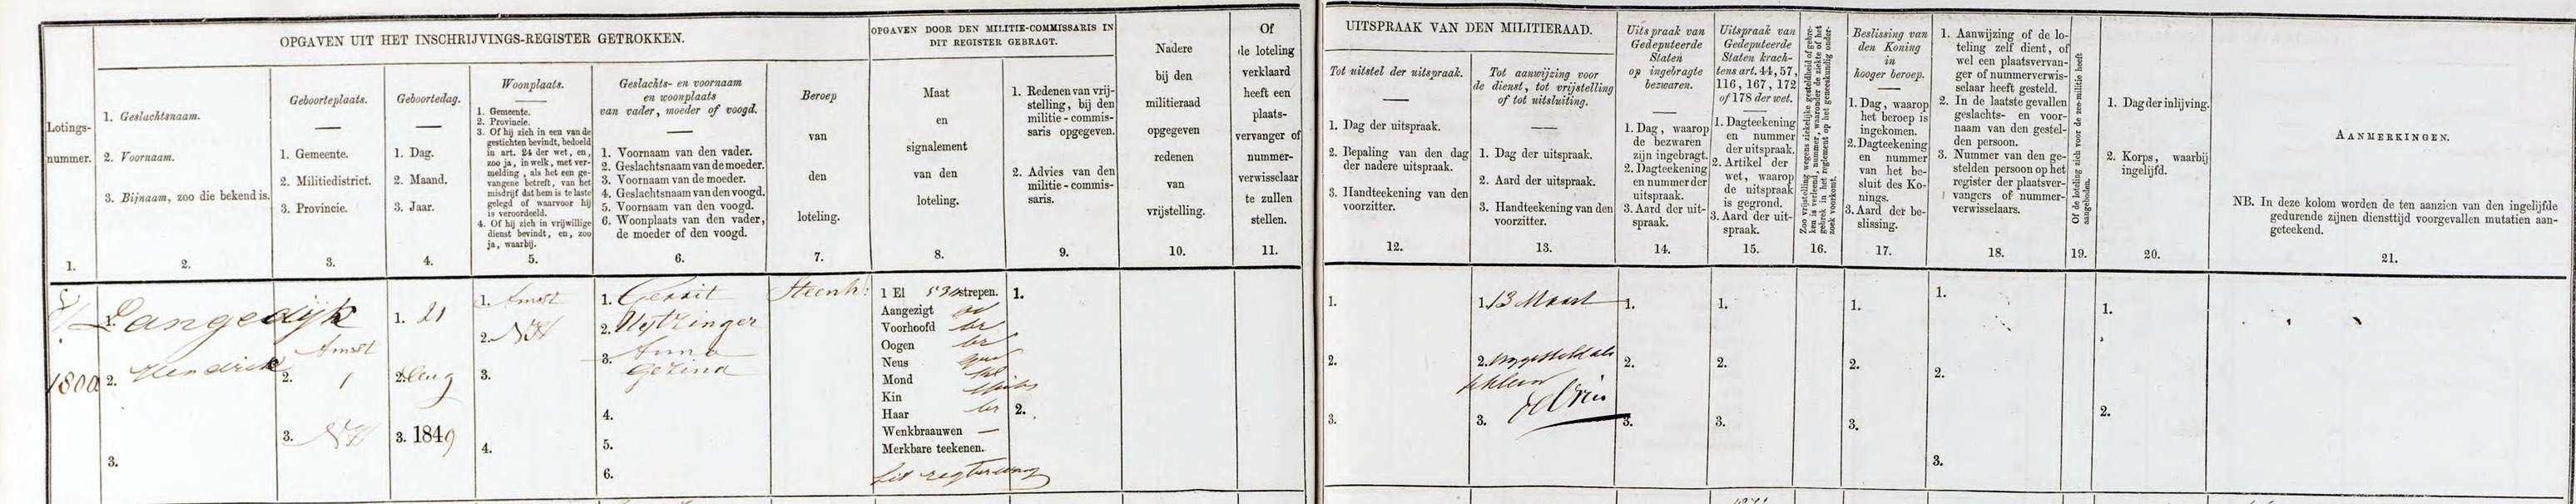 OPGAVEN UIT HET INSCHRIJVINGS-REGISTER GETROKKEN.
Lotings-
nummer.
1.
1. Geslachtsnaam.
2. Voornaam.
3. Bijnaam, zoo die bekend is.
2.
Geboorteplaats.
1. Gemeente.
2. Militiedistrict.
3. Provincie.
3.
Geboortedag.
1. Dag.
2. Maand.
3. Jaar.
4.
Woonplaats.
1. Gemeente.
2. Provincie.
3. Of hij zich in een van de
gestichten bevindt, bedoeld
in art. 24 der wet, en,
zoo ja, in welk, met ver-
melding, als het een ge-
vangene betreft, van het
misdrijf dat hem is te laste
gelegd of waarvoor hij
is veroordeeld.
4. Of hij zich in vrijwillige
dienst bevindt, en, zoo
ja, waarbij.
5.
Geslachts- en voornaam
en woonplaats
van vader, moeder of voogd.
1. Voornaam van den vader.
2. Geslachtsnaam van de moeder.
3. Voornaam van de moeder.
4. Geslachtsnaam van den voogd.
5. Voornaam van den voogd.
6. Woonplaats van den vader,
de moeder of den voogd.
6.
Beroep
van
den
loteling.
7.
OPGAVEN DOOR DEN MILITIE-COMMISSARIS IN
DIT REGISTER GEBRAGT.
Maat
en
signalement
van den
loteling.
8.
1. Redenen van vrij-
stelling, bij den
militie-commis-
saris opgegeven.
2. Advies van den
militie-commis-
saris.
9.
Nadere
bij den
militieraad
opgegeven
redenen
van
vrijstelling.
10.
Of
de loteling
verklaard
heeft een
plaats-
vervanger of
nummer-
verwisselaar
te zullen
stellen.
11.
UITSPRAAK VAN DEN MILITIERAAD.
Tot uitstel der uitspraak.
1. Dag der uitspraak.
2. Bepaling van den dag
der nadere uitspraak.
3. Handteekening van den
voorzitter.
12.
Tot aanwijzing voor
de dienst, tot vrijstelling
of tot uitsluiting.
1. Dag der uitspraak.
2. Aard der uitspraak.
3. Handteekening van den
voorzitter.
13.
Uitspraak van
Gedeputeerde
Staten
op ingebragte
bezwaren.
1. Dag, waarop
de bezwaren
zijn ingebragt.
2. Dagteekening
en nummer der
uitspraak.
3. Aard der uit-
spraak.
14.
Uitspraak van
Gedeputeerde
Staten krach-
tens art. 44, 57,
116, 167, 172
of 178 der wet.
1. Dagteekening
en nummer
der uitspraak.
2. Artikel der
wet, waarop
de uitspraak
is gegrond.
3. Aard der uit-
spraak.
15.
Zoo vrijstelling wegens ziekelijke gesteldheid of gebre-
ken is verleend, nummer, waaronder de ziekte of het
gebrek in het reglement op het geneeskundig onder-
zoek voorkomt.
16.
Beslissing van
den Koning
in
hooger beroep.
1. Dag, waarop
het beroep is
ingekomen.
2. Dagteekening
en nummer
van het be-
sluit des Ko-
nings.
3. Aard der be-
slissing.
17.
1. Aanwijzing of de lo-
teling zelf dient, of
wel een plaatsvervan-
ger of nummerverwis-
selaar heeft gesteld.
2. In de laatste gevallen
geslachts- en voor-
naam van den gestel-
den persoon.
3. Nummer van den ge-
stelden persoon op het
register der plaatsver-
vangers of nummer-
verwisselaars.
18.
Of de loteling zich voor de zee-militie heeft
aangeboden.
19.
1. Dag der inlijving.
2. Korps, waarbij
ingelijfd.
20.
AANMERKINGEN.
NB. In deze kolom worden de ten aanzien van den ingelijfde
gedurende zijnen diensttijd voorgevallen mutatien aan-
geteekend.
21.
1800
1. Langedijk
2. Hendrik
3.
Amst
2. 1
3. NH
1. 21
2. Aug
3. 1849
1. Amst
2. NH
3.
4.
1. Gerrit
2.
3. Anna
Gezina
4.
5.
6.
Steenh:
1 El 534 strepen.
Aangezigt ov
Voorhoofd br
Oogen br
Neus
Mond
Kin
Haar br
Wenkbraauwen —
Merkbare teekenen.
Lit regterwang
1.
2.
1.
2.
3.
1. 13 Maart
2.
te klein
3. de Vries
1.
2.
3.
1.
2.
3.
1.
2.
3.
1.
2.
3.
1.
2.